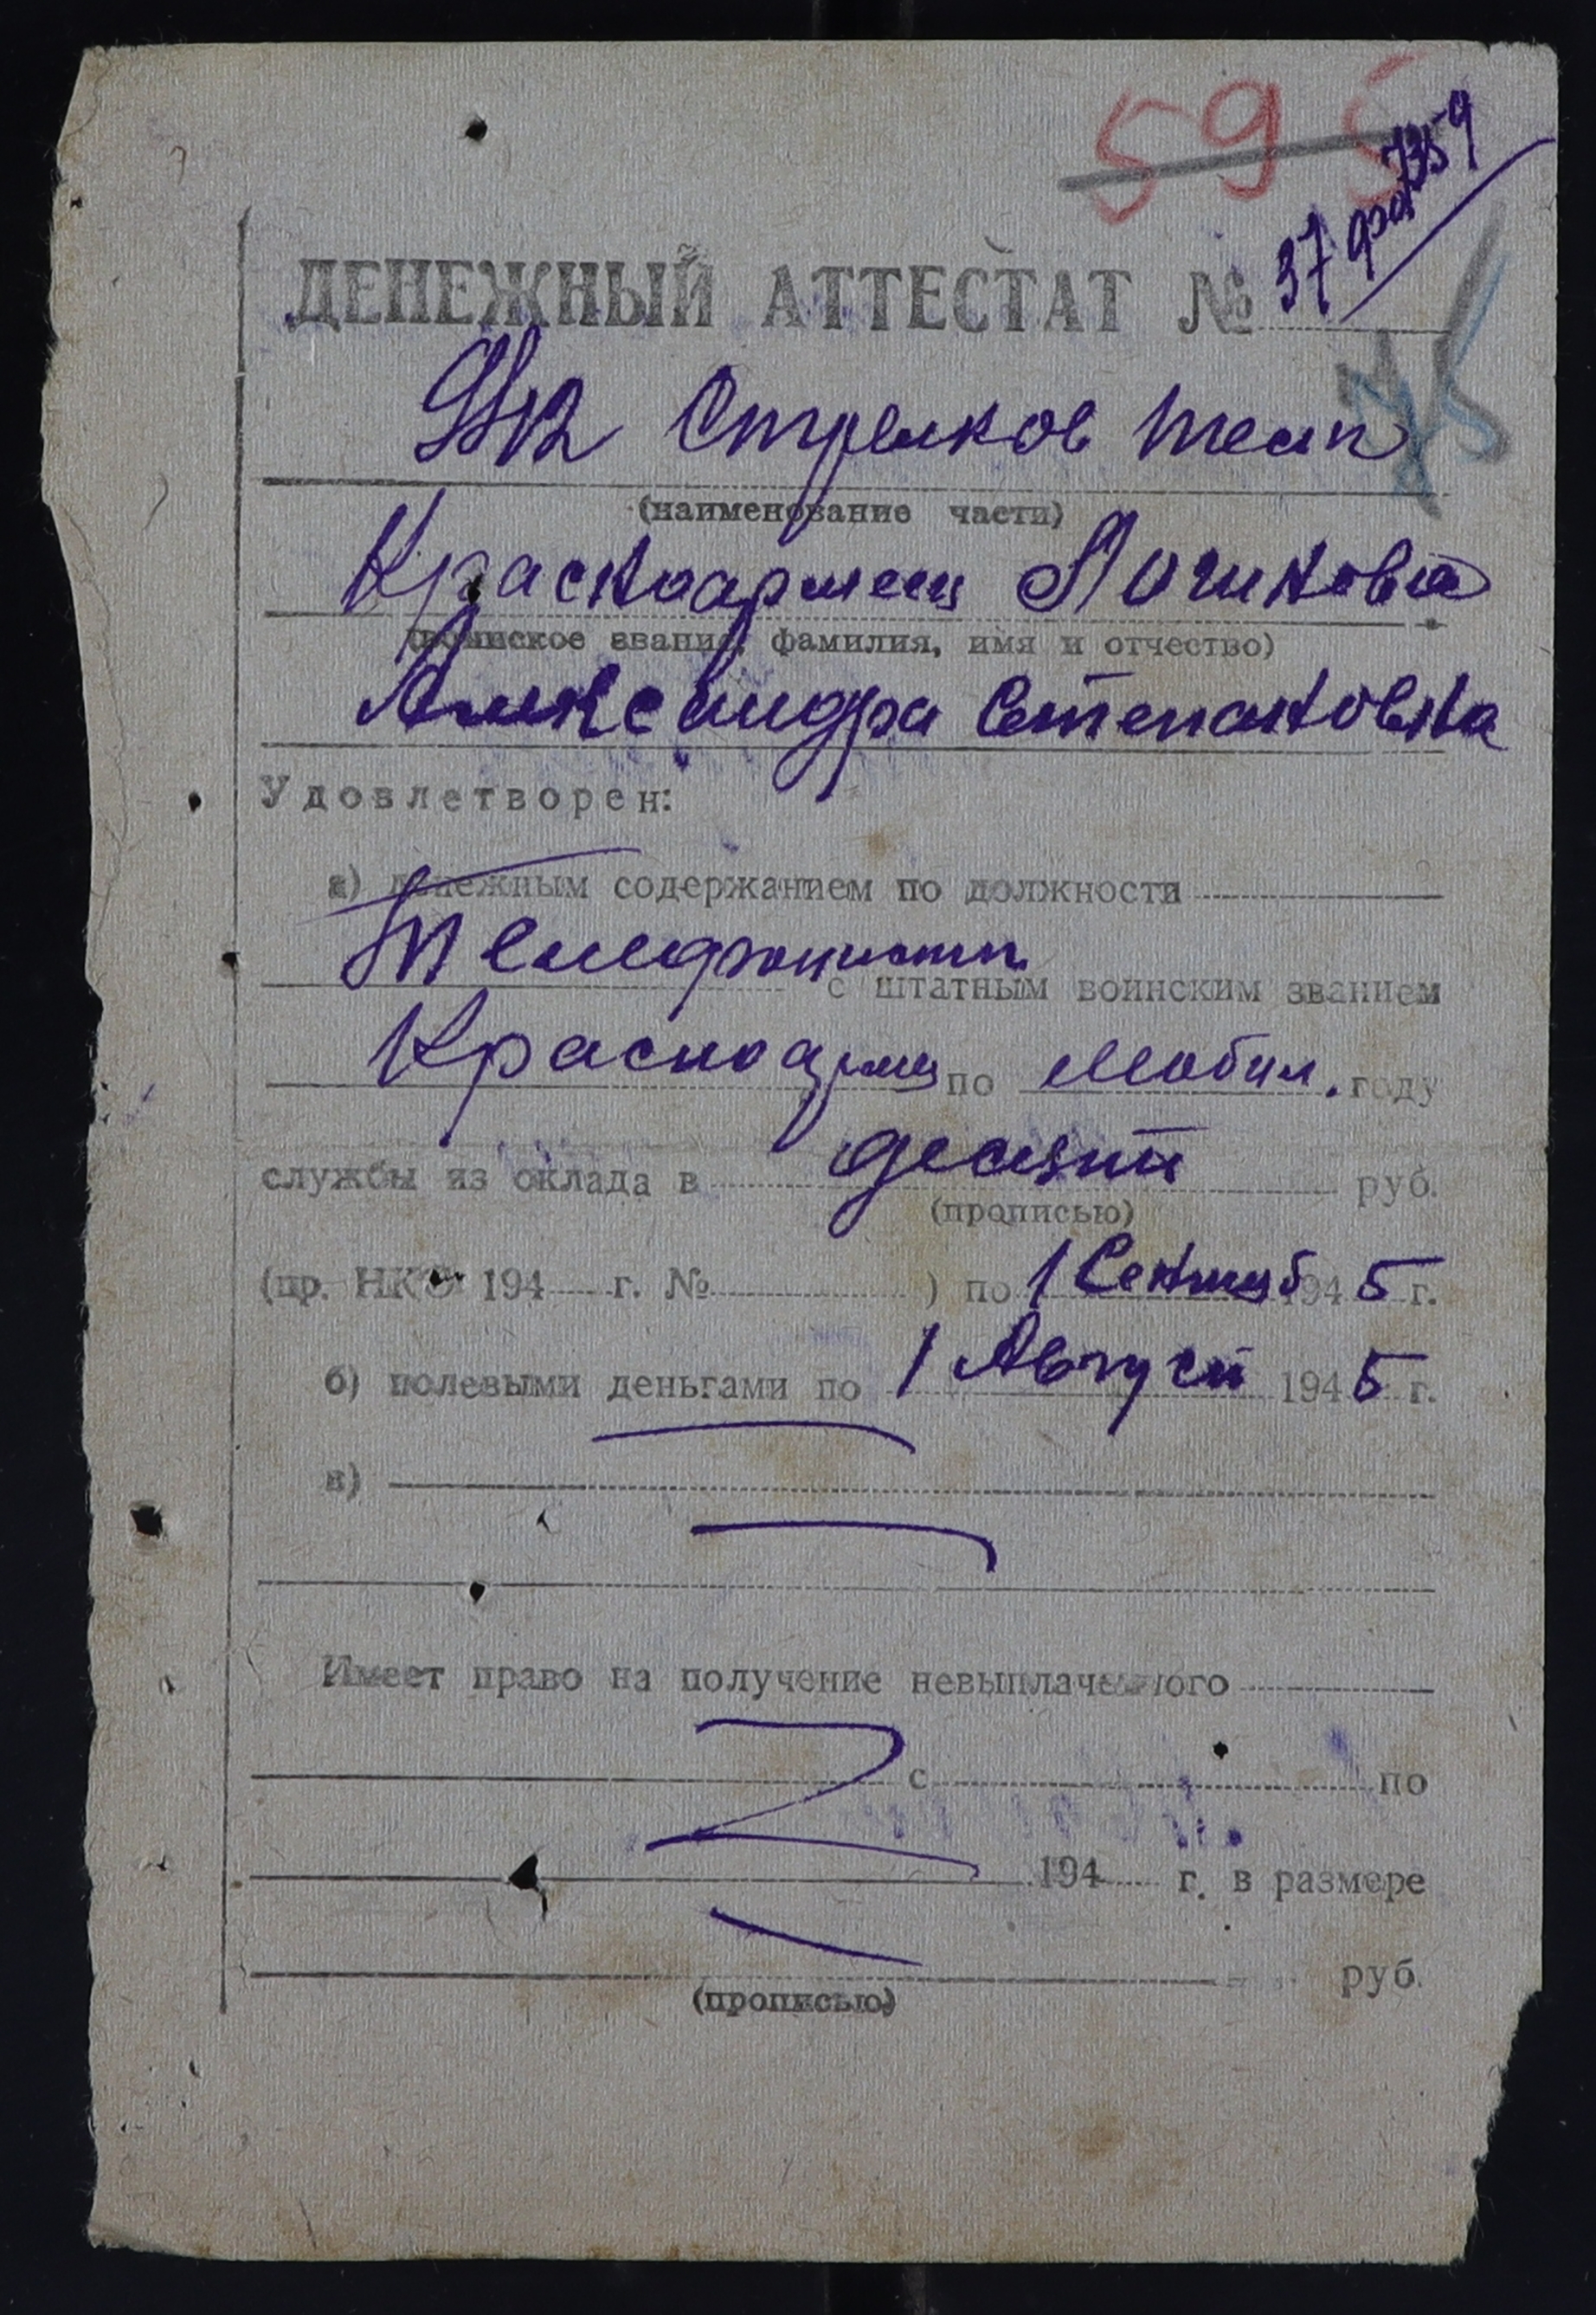 595
37
7359
ДЕНЕЖНЫЙ АТТЕСТАТ №
Стрелков
(наименование части)
Красноармеец
(воинское звание, фамилия, имя и отчество)
Александра Степановна
Удовлетворен:
а) денежным содержанием по должности
Телефонист
с штатным воинским званием
Красноармец по Мобил. году
службы из оклада в десять руб.
(прописью)
(пр. НКО 194 г. № ) по 1 Сентяб 1945 г.
б) полевыми деньгами по 1 Август 1945 г.
в)
Имеет право на получение невыплаченного
с по
194 г. в размере
руб.
(прописью)